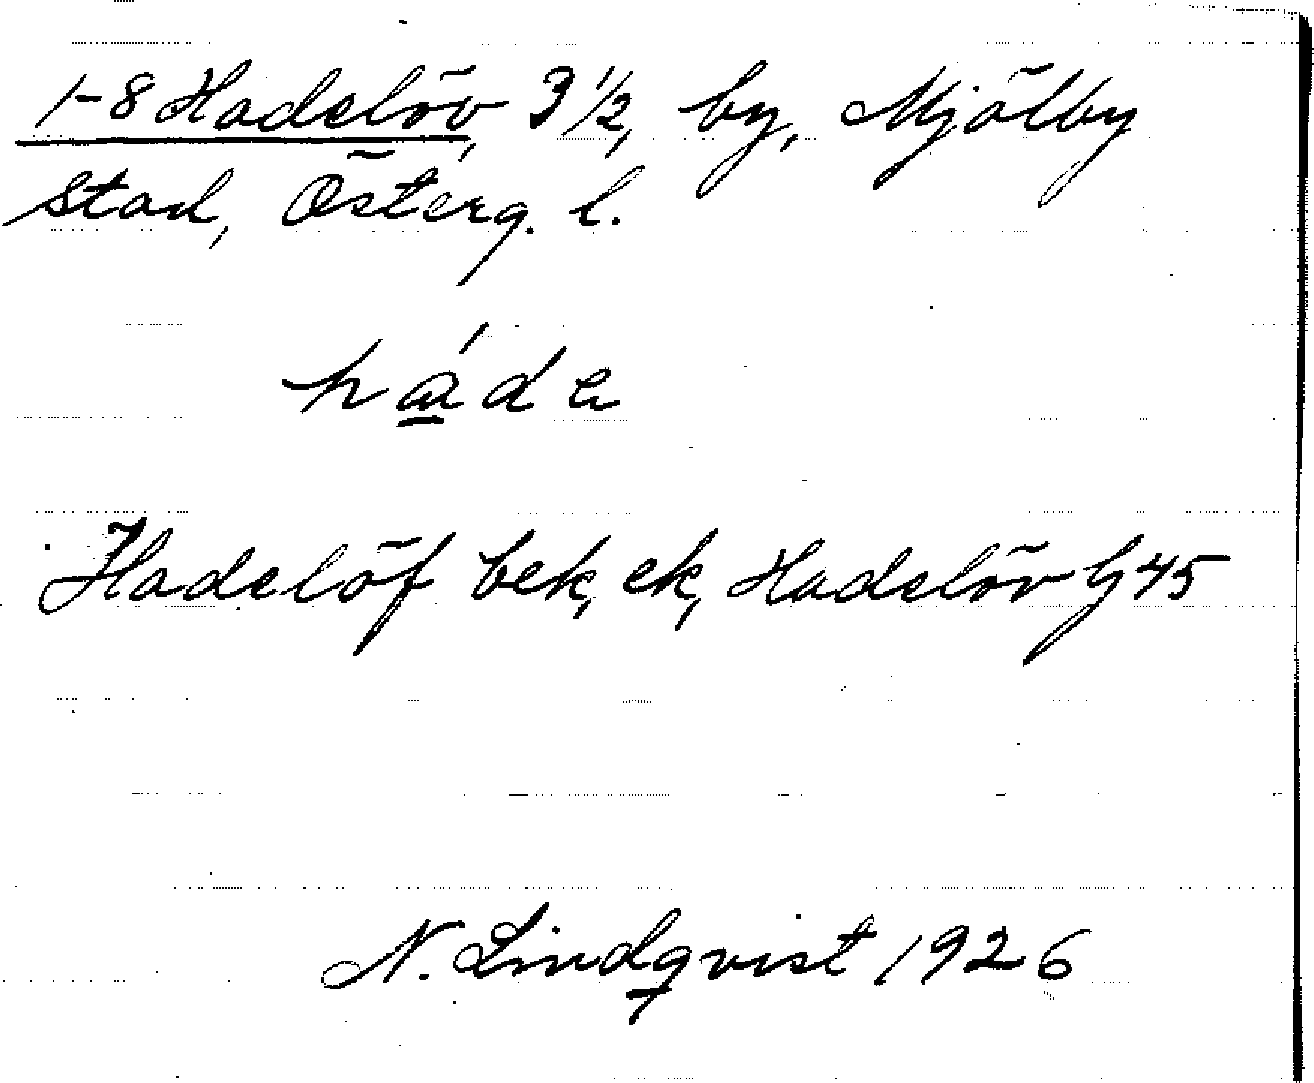 1-8 Hadelöv, 3 1/2, by, Mjölby
stad, Österg. l.
háde
Hadelöf bek, ek, Hadelöv G 45
N. Lindqvist 1926